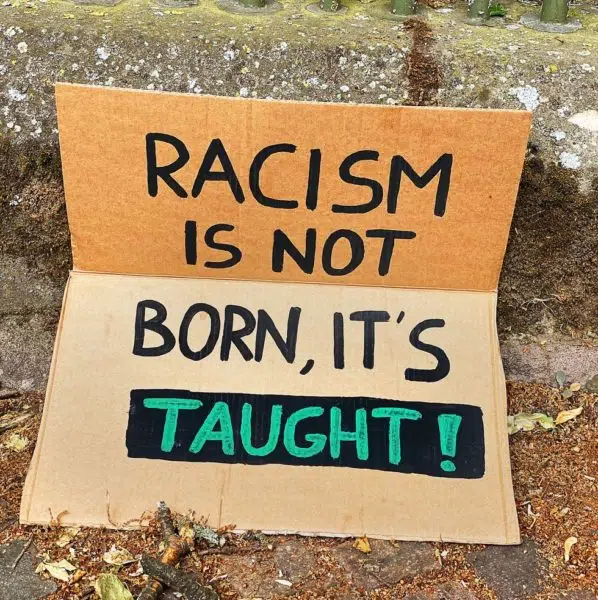 RACISM
IS NOT
BORN, IT'S
TAUGHT!